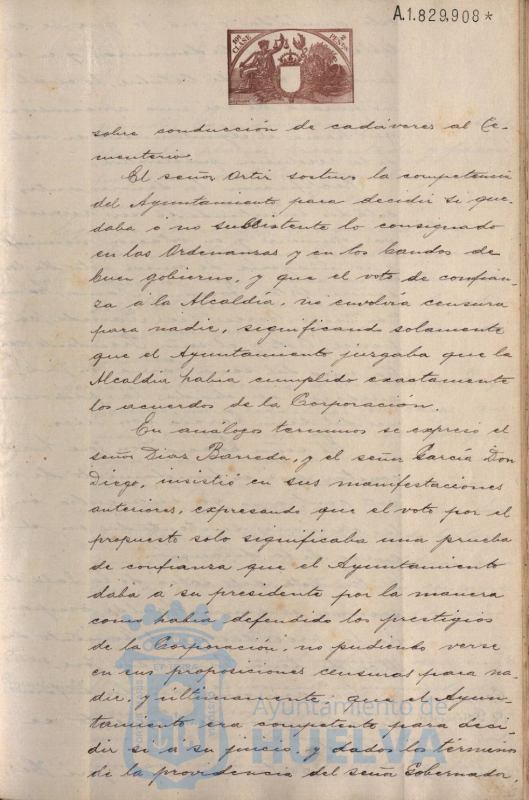 A.1.829.908*
10ª CLASE
2 PESETAS
sobre conducción de cadáveres al Ce-
menterio.
El señor Ortiz sostuvo la competencia
del Ayuntamiento para decidir si que-
daba ó no subsistente lo consignado
en las Ordenanzas y en los bandos de
buen gobierno, y que el voto de confian-
za á la Alcaldía, no envolvía censura
para nadie, significand solamente
que el Ayuntamiento juzgaba que la
Alcaldia había cumplido exactamente
los acuerdos de la Corporación.
En análogos terminos se expresó el
señor Diaz Barreda, y el señor García Don
Diego, insistió en sus manifestaciones
anteriores, expresando que el voto por el
propuesto solo significaba una prueba
de confianza que el Ayuntamiento
daba á su presidente por la manera
como había defendido los prestigios
de la Corporación, no pudiendo verse
en sus proposiciones censuras para na-
die, y últimamente, que el Ayun-
tamiento era competente para deci-
dir si á su juicio, y dados los terminos
de la providencia del señor Gobernador,
Ayuntamiento de
HUELVA